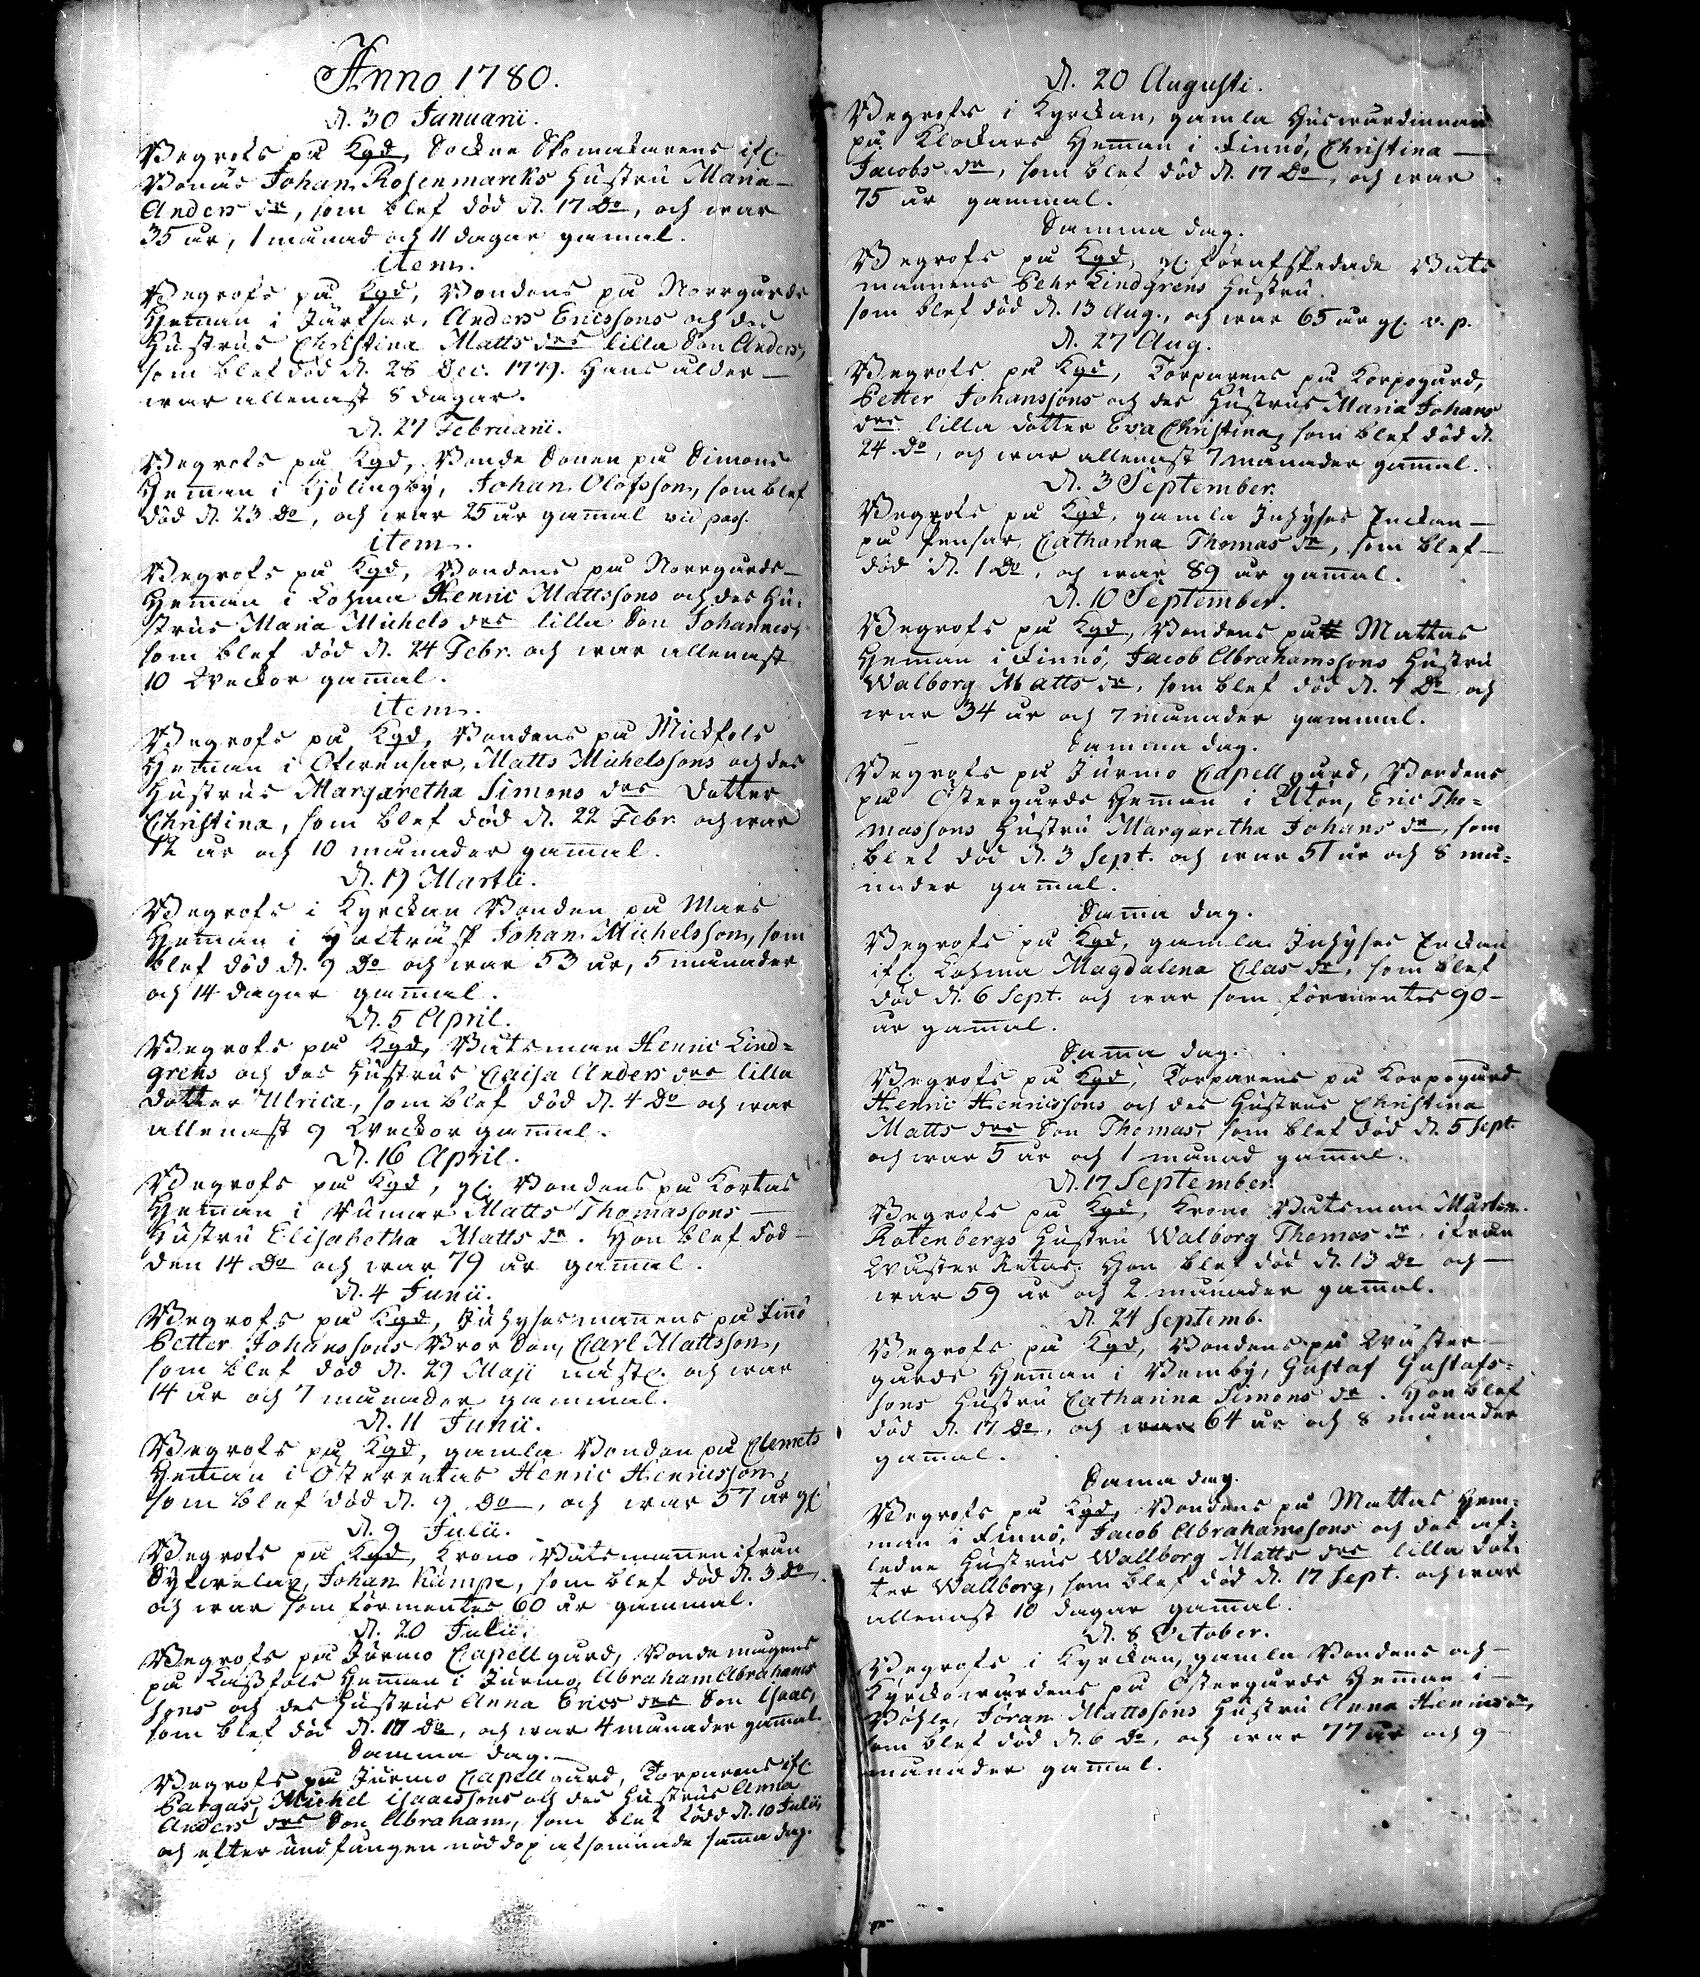 Anno 1780.
d. 30 Januarii.
Begrofs på Kgd, Sockne Skomakarens ifr.
Bonäs Johan Rosenmarcks Hustru Maria
Anders dr, som blef död d. 17 Do, och war
35 år, 1 månad och 11 dagar gamal.
item.
Begrofs på Kgd, Bondens på Norrgårds
Heman i Järfsar, Anders Ericssons och des
Hustrus Christina Matts drs lilla Son Anders,
som blef död d. 28 Dec. 1779. Hans ålder
war allenast 8 dagar.
d. 27 Februarii.
Begrofs på Kgd, Bonde Sonen på Simons
Heman i Kjölingby, Johan Olofsson, som blef
död d. 23 Do, och war 25 år gamal
item.
Begrofs på Kgd, Bondens på Norrgårds
Heman i Lohma Henric Mattssons och des Hu-
strus Maria Michels drs lilla Son Johannes,
som blef död d. 24 Febr. och war allenast
10 Weckor gamal.
item.
Begrofs på Kgd, Bondens på Mickfols
Heman i Öfwensar, Matts Michelssons och des
Hustrus Margaretha Simons drs Dotter
Christina, som blef död d. 22 Febr. och war
12 år och 10 månader gamal.
d. 19 Martii.
Begrofs i Kyrckan Bonden på Mars
Heman i Hälträsk Johan Michelsson, som
blef död d. 9 Do och war 53 år, 5 månader
och 14 dagar gamal.
d. 5 April.
Begrofs på Kgd, Båtsman Henric Lind=
grens och des Hustrus Caisa Anders drs lilla
Dotter Ulrica, som blef död d. 4 Do och war
allenast 9 Weckor gamal.
d. 16 April.
Begrofs på Kgd, gl. Bondens på Kortas
Heman i Wånar Matts Thomassons
Hustru Elisabetha Matts dr. Hon blef död
den 14 Do och war 79 år gamal.
d. 4 Junii.
Begrofs på Kgd, Inhysesmanens på Finö
Petter Johanssons Bror Son, Carl Mattsson,
som blef död d. 29 Maji nästl. och war
14 år och 7 månader gammal.
d. 11 Junii.
Begrofs på Kgd, gamla Bonden på Clemets
Heman i Österretas Henric Henricsson,
som blef död d. 9 Do, och war 57 år gl.
d. 9 Julii.
Begrofs på Kgd, Krono Båtsmanen ifrån
Johan Kämpe, som blef död d. 3 Do,
och war som förmentes 60 år gammal.
d. 20 Julii.
Begrofs på Jurmo Capell gård, Bonde mågens
på Kassfols Heman i Jurmo, Abraham Abrahams
sons och des Hustrus Anna Erics drs Son Isaac,
som blef död d. 17 Do, och war 4 månader gamal.
Samma dag.
Begrofs på Jurmo Capell gård, Torparens ifr.
Pargas, Michel Isaacssons och des Hustrus Anna
Anders drs Son Abraham, som blef född d. 10 Julii,
och efter undfången nöddop afsomnade sama dag.
d. 20 Augusti.
Begrofs i Kyrckan, gamla Huswärdinnan
på Klockars Heman i Finnö, Christina
Jacobs dr, som blef död d. 17 Do, och war
75 år gammal.
Samma dag.
Begrofs på Kgd, gl. förafskedade Båts
mannens Pehr Lindgrens Hustru
som blef död d. 13 Aug., och war 65 år gl. v. p.
d. 27 Aug.
Begrofs på Kgd, Torparens på Korpogård,
Petter Johanssons och des Hustrus Maria Johans
drs lilla dotter Eva Christina, som blef död d.
24 Do, och war allenast 7 månader gamal.
d. 3 September.
Begrofs på Kgd, gamla Inhyses Enckan
på Pensar, Catharina Thomas dr, som blef
död d. 1 Do, och war 89 år gamal.
d. 10 September.
Begrofs på Kgd, Bondens på Mattas
Heman i Finnö, Jacob Abrahamssons Hustru
Walborg Matts dr, som blef död d. 7 Do och
war 34 år och 7 månader gammal.
Samma dag.
Begrofs på Jurmo Capell gård, Bondens
på Östergårds Heman i Utön, Eric Tho=
massons Hustru Margaretha Johans dr, som
blef död d. 3 Sept. och war 51 år och 8 må=
nader gamal.
Sama dag.
Begrofs på Kgd, gamla Inhyses Enckan
ifr. Lohma Magdalena Clas dr, som blef
död d. 6 Sept. och war som förmentes 90
år gamal.
Sama dag.
Begrofs på Kgd, Torparens på Korpogård
Henric Henricssons och des Hustrus Christina
Matts drs Son Thomas, som blef död d. 5 Sept.
och war 5 år och 1 månad gamal.
d. 17 September.
Begrofs på Kgd, Krono Båtsman Mårten
Rotenbergs Hustru Walborg Thomas dr, ifrån
Wäster Retas. Hon blef död d. 13 Do och
war 59 år och 2 månader gamal.
d. 24 Septemb.
Begrofs på Kgd, Bondens på Wäster
gårds Heman i Wemby, Gustaf Gustafs=
sons Hustru Catharina Simons dr. Hon blef
död d. 17 Do, och war 64 år och 8 månader
gamal.
Sama dag.
Begrofs på Kgd, Bondens på Mattas Hem=
man i Finnö, Jacob Abrahamssons och des af=
ledne Hustrus Wallborg Matts drs lilla dot=
ter Wallborg, som blef död d. 17 Sept. och war
allenast 10 dagar gamal.
d. 8 October.
Begrofs i Kyrckan, gamla Bondens och
Kyrckowärdens på Östergårds Heman i
Jöran Mattssons Hustru Anna Henrics dr,
som blef död d. 6 Do, och war 77 år och 9
månader gamal.